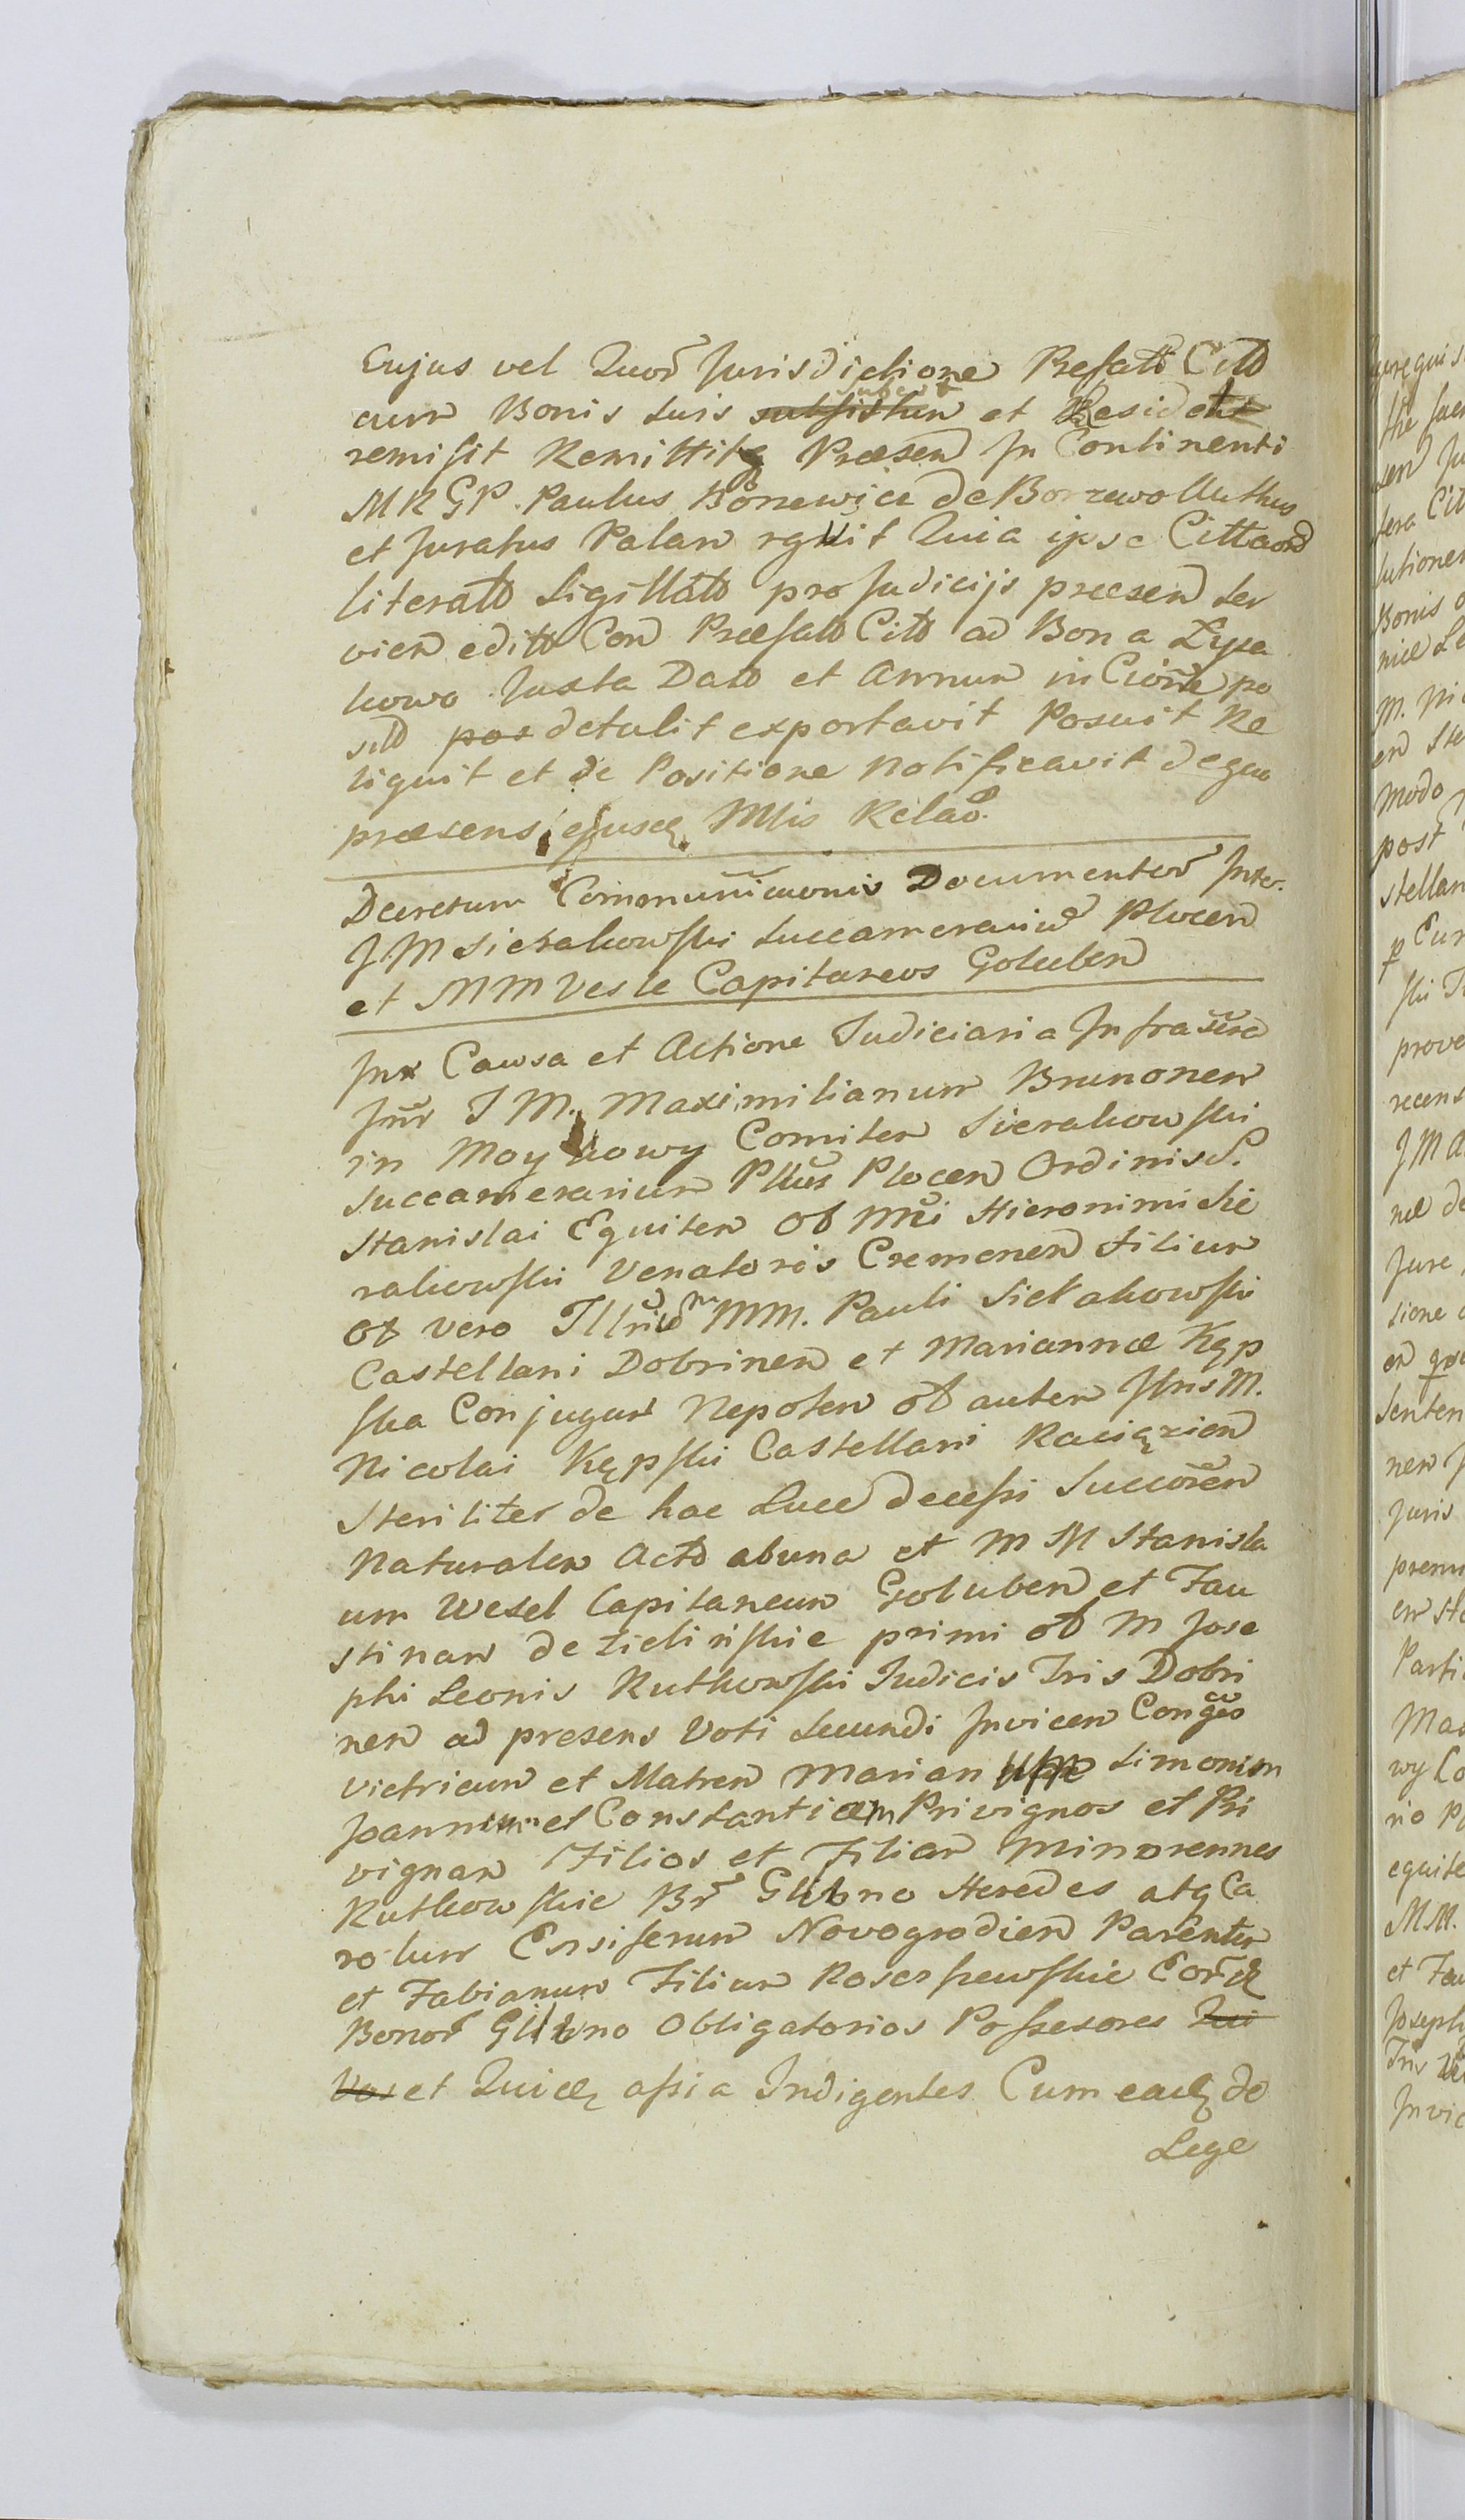 Cujus vel Quor Jurisdictione Prefatt Citt
cum Bonis suis subsistun et Resident
remisit Remittitq Præsen In Continenti
MRGP. Paulus Bonewicz de Borzewo Authus
et Juratus Palam rgvit Quia ipse Cittaon
literatt Sigillatt pro Judicijs præsen ser
vien editt Con Præfatt Citt ad Bona Łysa
kowo Juxta Datt et Annum in Cione po
sitt pos detulit exportavit Posuit Re
liquit et de Positione notificavit de quo
præsens ejusdę Mlis Relao.
Decretum Communicaonis Documentor Inter.
J.M Sierakowski Succamerariu Plocen
et MM Vesle Capitaneos Goluben
Inx Causa et Actione Judiciaria Infrascrd
Inr J M. Maximilianum Brunonem
in Moykowy Comitem Sierakowski
Succamerarium Pltus Plocen Ordinis S.
Stanislai Equitem Ol Mci Hieronimi Sie
rakowski Venatoris Cremenen Filium
Ol vero Illri MM. Pauli Sierakowski
Castellani Dobrinen et Mariannæ Kęp
ska Conjugum Nepotem ol autem Illris M.
Nicolai Kępski Castellani Raciązien
Steriliter de hac Luce decessi Succoren
Naturalem Actt ab una et M M Stanisla
um Wesel Capitaneum Goluben et Fau
stinam de Zielinskie primi ol M Jose
phi Leonis Rutkowski Judicis Tris Dobri
nen ad presens Voti Secundi Invicem Conges
Victricum et Matrem Marian Simonem
Joannem et Constantiam Privignos et Pri
vignam Filios et Filiam Minorennes
Rutkowskie Br Glibno Heredes atq Ca
rolum Ensiferum Novogrodien Parentem
et Fabianum Filium Kosesszewskie Eorq
Bonor Glibno Obligatorios Possesores Qui
Vos et Quicq assia Indigentes Cum eadę de
Lege